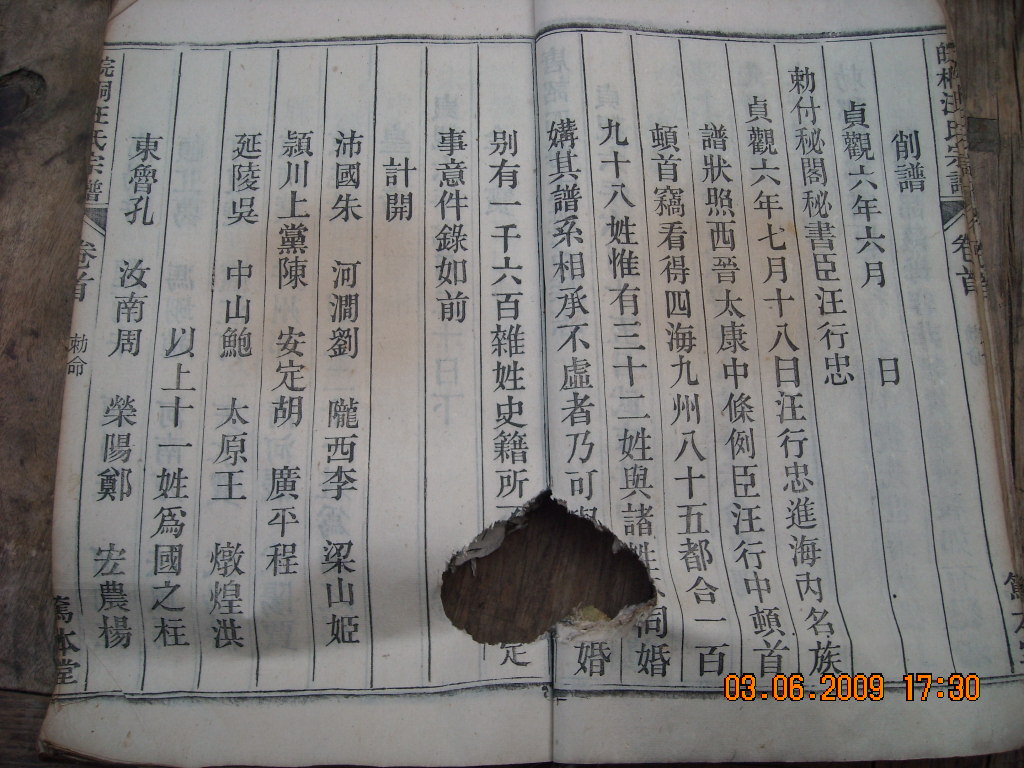 削譜
貞觀六年六月 日
勅付秘閣秘書臣汪行忠
貞觀六年七月十八日汪行忠進海內名族
譜狀照西晉太康中條例臣汪行中頓首
頓首竊看得四海九州八十五都合一百
九十八姓惟有三十二姓與諸姓 同婚
媾其譜系相承不虛者乃可 婚
別有一千六百雜姓史籍所 定
事意件錄如前
計開
沛國朱 河澗劉 隴西李 梁山姬
潁川上黨陳 安定胡 廣平程
延陵吳 中山鮑 太原王 燉煌洪
以上十一姓爲國之柱
東魯孔 汝南周 榮陽鄭 宏農楊
皖桐汪氏宗譜 卷首 勅命 篤本堂
汪氏宗譜 卷首
03.06.2009 17:30